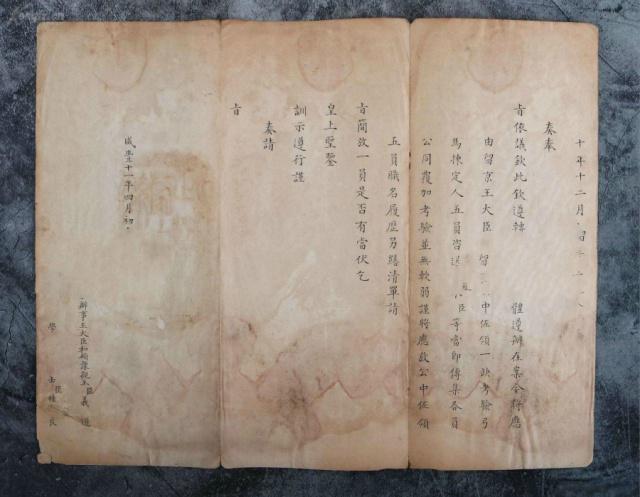 十年十二月
奏奉
旨依議欽此欽遵轉 體遵辦在案今將應
由留京王大臣 留 中佐領一缺考驗弓
馬揀定人五員咨送 臣等當即傳集各員
公同覆加考驗並無軟弱謹將應放公中佐領
五員職名履歷另繕清單請
旨簡放一員是否有當伏乞
皇上聖鑒
訓示遵行謹
奏請
旨
咸豐十一年四月初
辦事王大臣和碩豫親王臣義道
學士臣